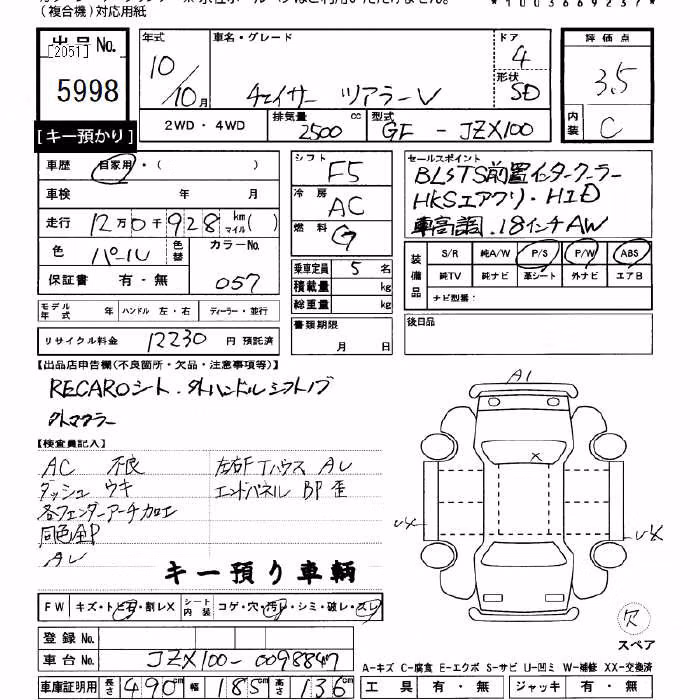 (複合機)対応用紙
*1003669237*
出品No. 年式 車名・グレード ドア 評価点
[2051] 10/10月 チェイサー ツアラーV 4 3.5
5998 形状 SD
2WD・4WD 排気量 2500 cc 型式 GF - JZX100 内装 C
[キー預かり]
車歴 自家用・( ) シフト F5 セールスポイント
車検 年 月 冷房 AC BLSTS前置インタークーラー
走行 12万0千928 km マイル( ) 燃料 G HKSエアクリ・HID
車高調.18インチAW
色 パール 色替 カラーNo. 057 乗車定員 5 名
保証書 有・無 積載量 kg
総重量 kg
装備品 S/R 純A/W P/S P/W ABS
純TV 純ナビ 革シート 外ナビ エアB
ナビ型番:
モデル年式 年 ハンドル 左・右 ディーラー・並行 書類期限 月 日 後日品
リサイクル料金 12230 円 預託済
【出品店申告欄(不良箇所・欠品・注意事項等)】
RECAROシート.外ハンドルシフトノブ
外マフラー
【検査員記入】
AC 不良 左右FTハウス AU
ダッシュ ウキ エンドパネル BP歪
各フェンダーアーチ加工
同色全P
AU
A1
UX
UX
キー預り車輌
FW キズ・トビ石・割レX シート内装 コゲ・穴・汚レ・シミ・破レ・スレ
欠
スペア
登録No.
車台No. JZX100-0098847
A-キズ C-腐食 E-エクボ S-サビ U-凹ミ W-補修 XX-交換済
車庫証明用 長さ 490cm 幅 185cm 高さ 136cm 工具 有・無 ジャッキ 有・無